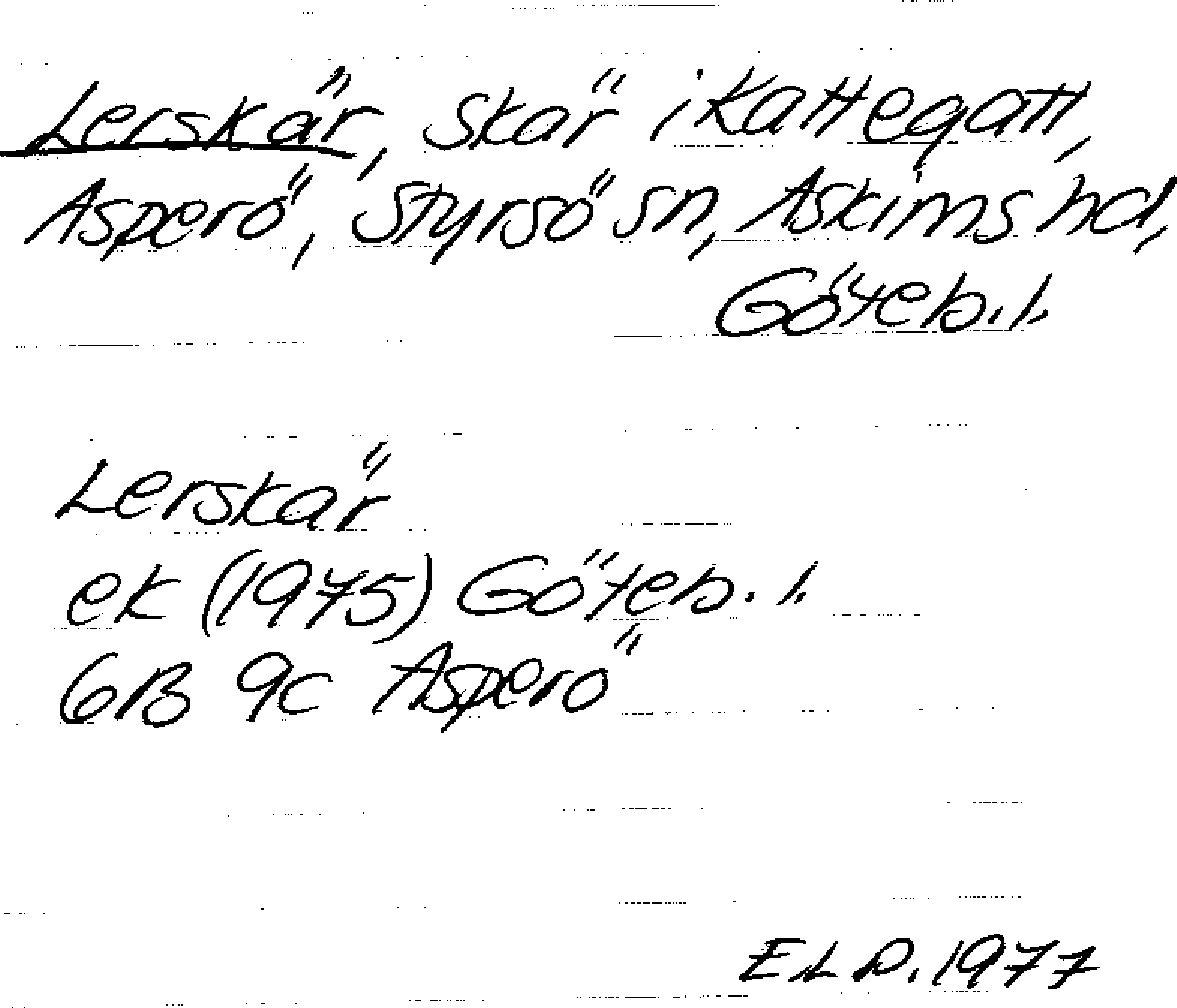 Lerskär, Skär i Kattegatt,
Asperö, Styrsö sn, Askims hd,
Göteb. l.
Lerskär
ek (1975) Göteb. l.
6B 9c Asperö
ELD. 1977